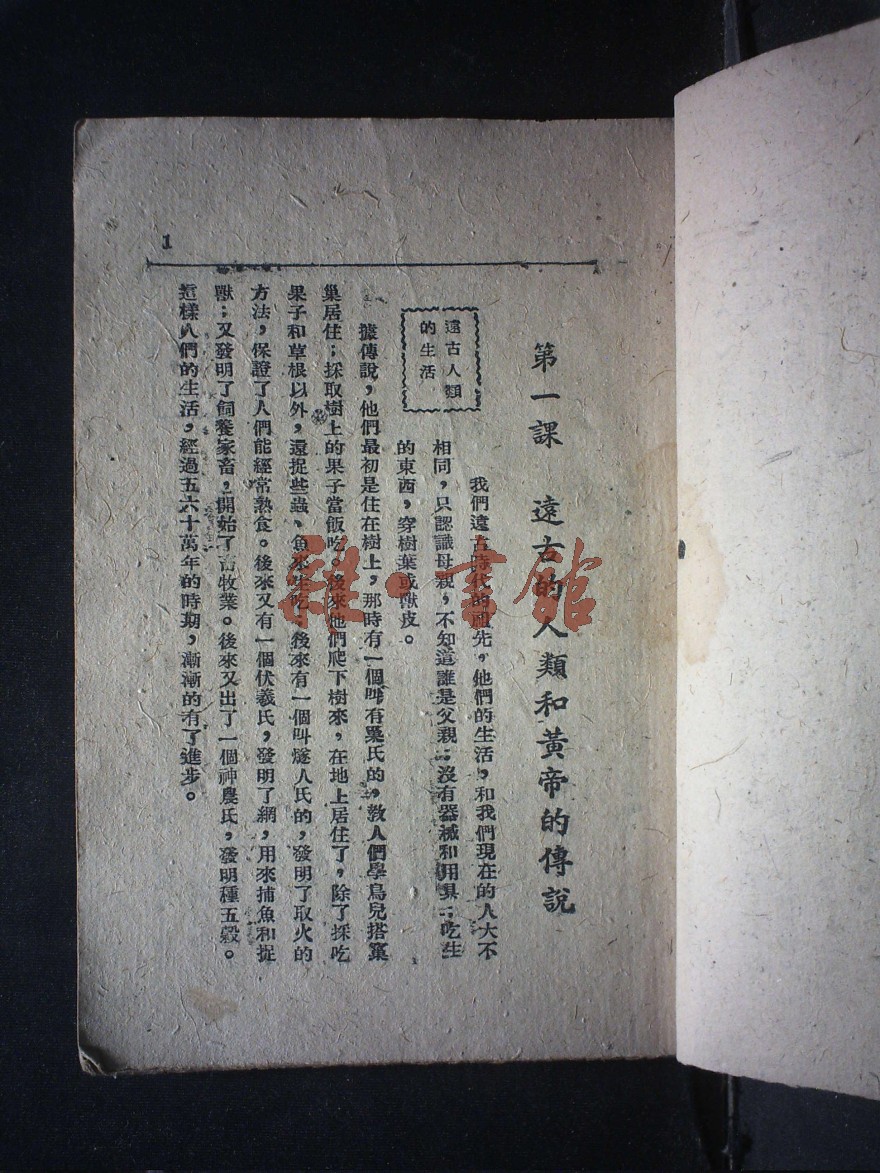 第一課 遠古的人類和黃帝的傳說
遠古人類
的生活
我們遠古時代的祖先，他們的生活，和我們現在的人大不
相同，只認識母親，不知道誰是父親；沒有器械和用具；吃生
的東西，穿樹葉或獸皮。
據傳說，他們最初是住在樹上，那時有一個叫有巢氏的，教人們學鳥兒搭窠
巢居住；採取樹上的果子當飯吃，後來他們爬下樹來，在地上居住了，除了採吃
果子和草根以外，還捉些蟲、魚來生吃；後來有一個叫燧人氏的，發明了取火的
方法，保證了人們能經常熟食。後來又有一個伏羲氏，發明了網，用來捕魚和捉
獸；又發明了飼養家畜，開始了畜牧業。後來又出了一個神農氏，發明種五穀。
這樣人們的生活，經過五六十萬年的時期，漸漸的有了進步。
1
雜·書館